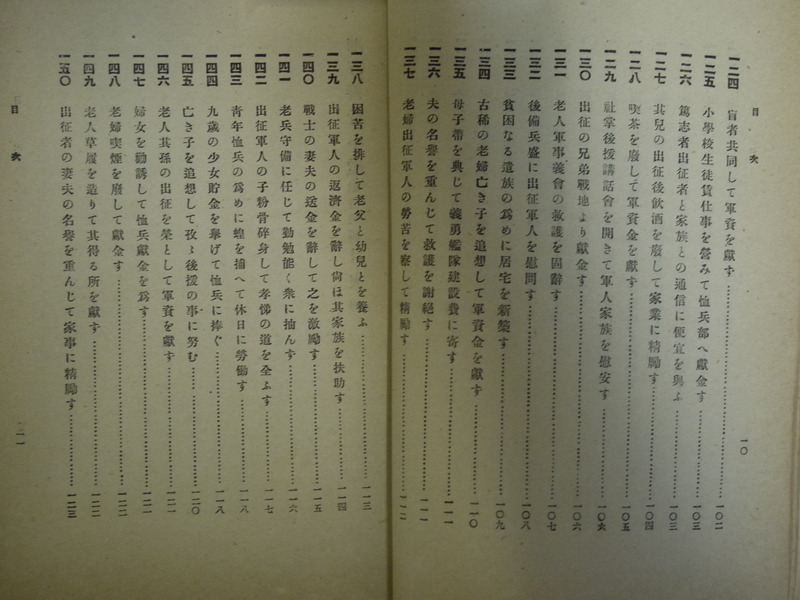 目次
一〇
一二四 盲者共同して軍資を獻ず……一〇二
一二五 小學校生徒賃仕事を營みて恤兵部へ獻金す……一〇三
一二六 篤志者出征者と家族との通信に便宜を與ふ……一〇三
一二七 其兒の出征後飮酒を廢して家業に精勵す……一〇四
一二八 喫茶を廢して軍資金を獻ず……一〇五
一二九 社掌後援講話會を開きて軍人家族を慰安す……一〇六
一三〇 出征の兄弟戰地より獻金す……一〇六
一三一 老人軍事義會の救護を固辭す……一〇七
一三二 後備兵盛に出征軍人を慰問す……一〇八
一三三 貧困なる遺族の爲めに居宅を新築す……一〇九
一三四 古稀の老婦亡き子を追想して軍資金を獻ず……一一〇
一三五 母子帶を典じて義勇艦隊建設費に寄す……一一一
一三六 夫の名譽を重んじて救護を謝絕す……一一一
一三七 老婦出征軍人の勞苦を察して精勵す……一一二
一三八 困苦を排して老父と幼兒とを養ふ……一一三
一三九 出征軍人の返濟金を辭し尙ほ其家族を扶助す……一一四
一四〇 戰士の妻夫の送金を辭して之を激勵す……一一五
一四一 老兵守備に任じて勤勉能く衆に抽んず……一一六
一四二 出征軍人の子粉骨碎身して孝悌の道を全ふす……一一七
一四三 靑年恤兵の爲めに蝗を捕へて休日に勞働す……一一八
一四四 九歲の少女貯金を擧げて恤兵に捧ぐ……一一八
一四五 亡き子を追想して孜々後援の事に努む……一二〇
一四六 老人其孫の出征を榮として軍資を獻ず……一二一
一四七 婦女を勸誘して恤兵獻金を爲す……一二一
一四八 老婦喫煙を廢して獻金す……一二二
一四九 老人草履を造りて其得る所を獻ず……一二二
一五〇 出征者の妻夫の名譽を重んじて家事に精勵す……一二三
目次
一一